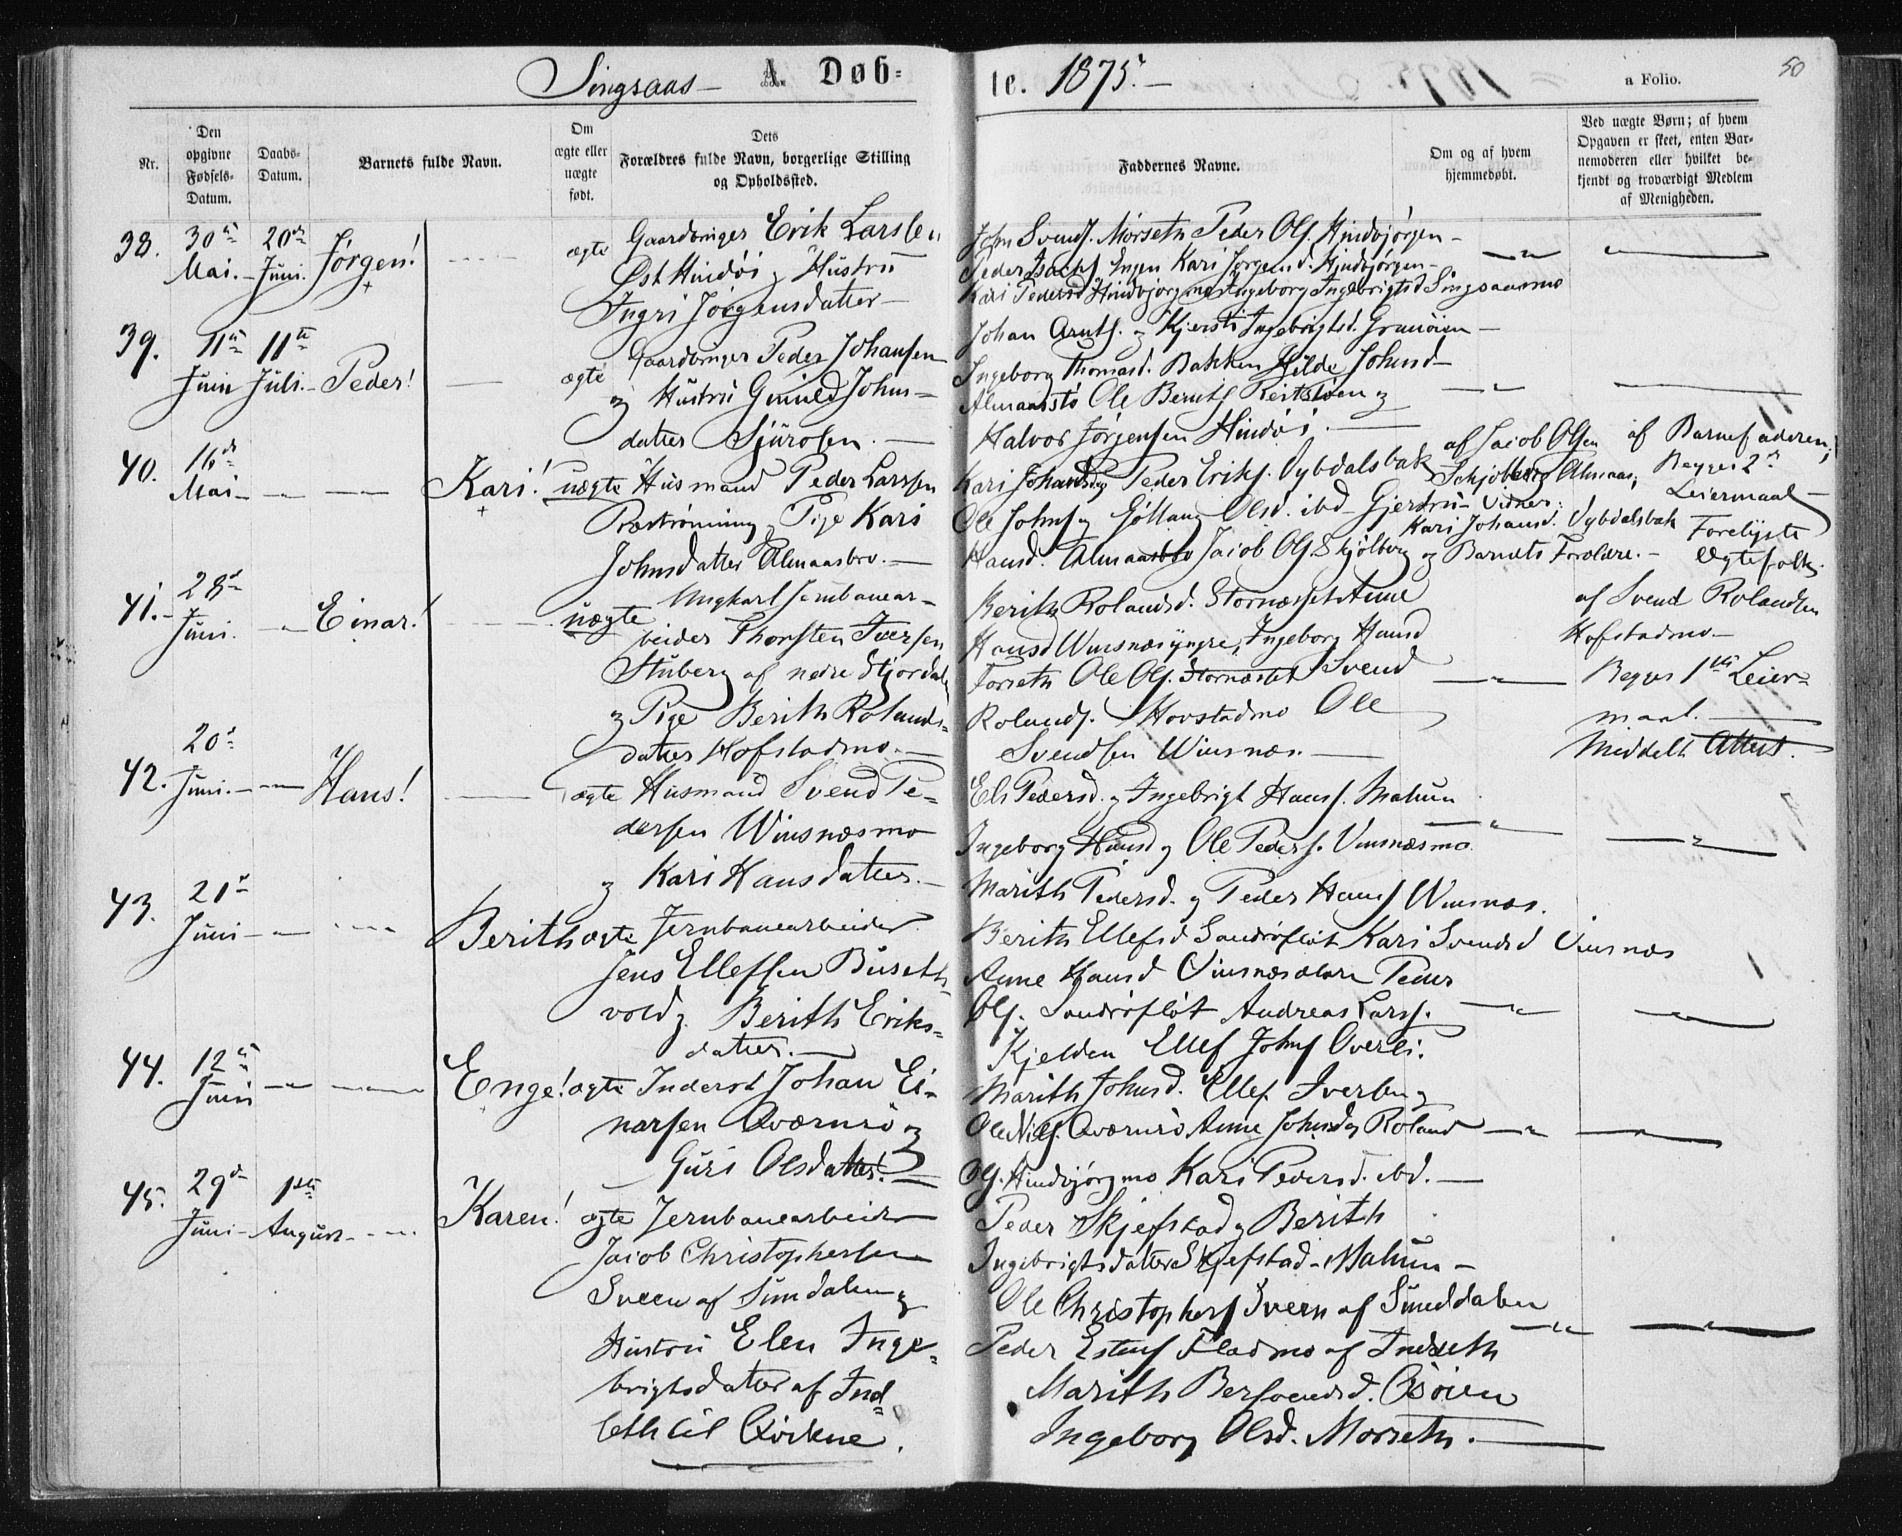 Singsaas – A. Døb=
te. 1875. –
a Folio.
50
Nr.
Den opgivne Fødsels-Datum.
Daabs-Datum.
Barnets fulde Navn.
Om ægte eller uægte født.
Dets Forældres fulde Navn, borgerlige Stilling og Opholdssted.
Faddernes Navne.
Om og af hvem hjemmedøbt.
Ved uægte Børn; af hvem Opgaven er skeet, enten Barnemoderen eller hvilket bekjendt og troværdigt Medlem af Menigheden.
38. 30te Mai. – 20de Juni. Jørgen!
ægte Gaardbruger Erik Larssen
Øst Hindøi og Hustru
Ingri Jørgensdatter –
John Svends. Morseth Peder Ols. Hindbjørgen –
Peder Engen Kari Jørgensd. Hindbjørgen –
Kari Pedersd Hindbjørgmo Ingeborg Ingebrigtsd Singsaasmo
39. 11te Juni 11te Juli – Peder!
ægte Gaardbruger Peder Johansen
og Hustru Gunild Johns=
datter Sjurolen. –
Johan Arnts. og Kjersti Ingebrigtsd. Granøien –
Ingeborg Thomasd. Bakken Hilde Johnsd –
Almaasstø Ole Bernts og
Halvor Jørgensen Hindøi. –
40. 16de Mai – Kari!
uægte Husmand Peder Larssen
Præstrønning og Pige Kari
Johnsdatter Almaasbro. –
Kari Johansd og Peder Eriks. Vybdalsbak
Ole Johns og Gøllaug Olsd. ibd – Gjertru
Hansd. Almaasbro Jacob Ols Skjølberg og Barnets Forældre. –
af Jacob Olsen
Skjølberg Almaas;
Vidner:
Kari Johansd. Vybdalsbak
af Barnefaderen;
Begges 2det
Leiermaal –
Forelyste
Ægtefolk.
41. – 28de Juni. Einar!
uægte Ungkarl Jernbanear=
beider Thorsten Iversen
Stuberg af nedre Stjordalen
og Pige Berith Rolands=
datter Hofstadmo. –
Berith Rolandsd. Stornæsset Anne
Hansd Winsnæs yngre, Ingeborg Hansd
Forseth Ole Ols. Stornæsset Svend
Rolands. Hovstadmo Ole
Svendsen Winsnæs. –
af Svend Rolandsen
Hofstadmo –
Begges 1ste Leier=
maal. –
Meddelt Attest.
42. 20de Juni. – Hans!
ægte Husmand Svend Pe=
dersen Winsnæsmo
og Kari Hansdatter. –
Eli Pedersd. og Ingebrigt Hans. Malum
Ingeborg Hansd og Ole Peders. Vinsnæsmo
Marith Pedersd. og Peder Hans Winsnæs.
43. 21de Juni – Berith
ægte Jernbanearbeider
Jens Ellefsen Buseth=
vold og Berith Eriks=
datter. –
Berith Ellefsd Sandrøfløt Kari Svendsd Vinsnæs
Anne Hansd Vinsnæs ældre Peder
Ols. Sandrøfløt Andreas Larss.
Kjelden Ellef Johns Overli.
44. 12te Juni Enge!
ægte Inderst Johan Ei=
narsen Qværnrø og
Guri Olsdatter! –
Marith Johnsd. Ellef. og
Ole Niels. Qværnrø Anne Johnsd og Roland
Ols. Hindbjørgmo Kari Pedersd. ibd. –
45. 29de Juni – 1ste August – Karen!
ægte Jernbanearbeider
Jacob Christophersen
Sveen af Sundalen og
Hustru Elen Inge=
brigtsdatter af Ind=
seth til Qvikne.
Peder Skjefstad og Berith
Ingebrigtsdatter Skjefstad – Malum –
Ole Christophers Sveen af Sunddalen
Peder Estens Fladmo af Indseth
Marith Bersvendsd.
Ingeborg Olsd. Morseth. –